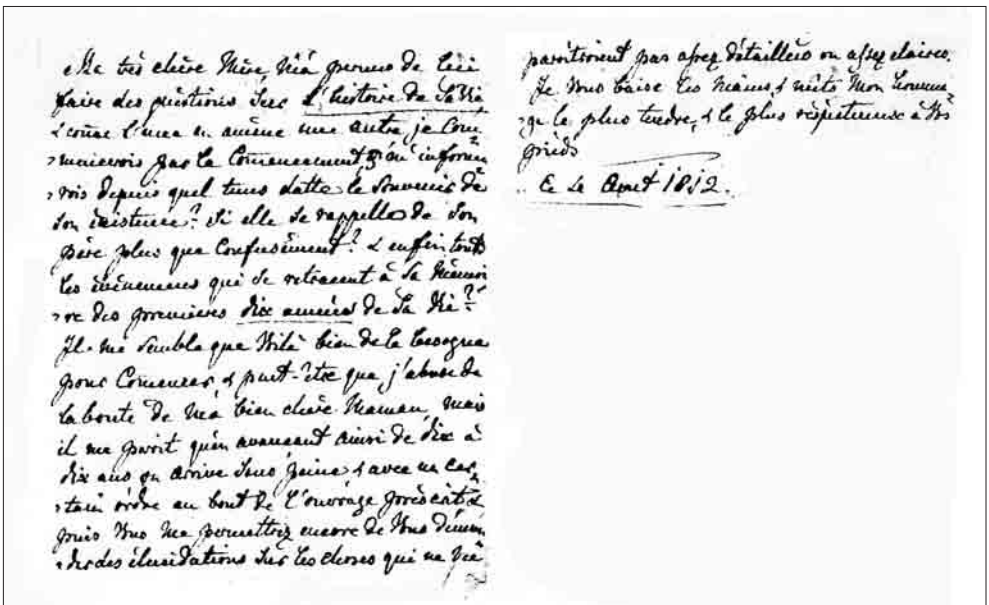 Ma très chère Mère m'a permis de Lui
faire des quéstions sur L'histoire de Sa Vie
& come l'une en amène une autre, je Com¬
¬mencerois par le Comencement & m'informe
¬rois depuis quel tems datte le Souvenir de
Son éxistence? Si elle se rappelle de Son
père plus que Confusément? & enfin touts
les évènemens qui se retracent à Sa Mémoi
¬re des premieres dix années de Sa Vie?
Il me Semble que Voilà bien de la besogne
pour Comencer, & peut-être que j'abuse de
la bonté de Ma bien chère Maman, mais
il me paroit qu'en avancant ainsi de dix à
dix ans on arrive Sans peine & avec un cer
¬tain ordre au bout de L'ouvrage préscrit &
puis Vous me permettrez encore de Vous déman
¬der des élucidations Sur les choses qui ne me
paroitroient pas assez détaillées ou assez claires.
Je Vous baise les Mains, & mèts Mon homma
¬ge le plus tendre, & le plus réspéctueux à Vos
pieds
Ce 20 Aout 1812.